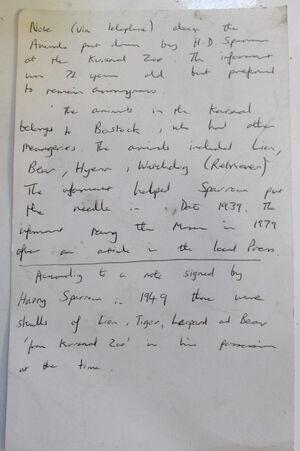 Note (via telephone) about the
Animals put down by H.D. Sparrow
at the Kursaal Zoo. The informant
was 72 years old but preferred
to remain anonymous.
'The animals in the Kursaal
belonged to Bostock, who had other
menageries. The animals included Lion,
Bear, Hyena, Watchdog (Retriever)
The informant helped Sparrow put
the needle in. Date 1939. The
informant rang the Museum in 1979
after an article in the local Press.
According to a note signed by
Harry Sparrow in 1949 there were
skulls of Lion, Tiger, Leopard and Bear
'from Kursaal Zoo' in his possession
at the time.